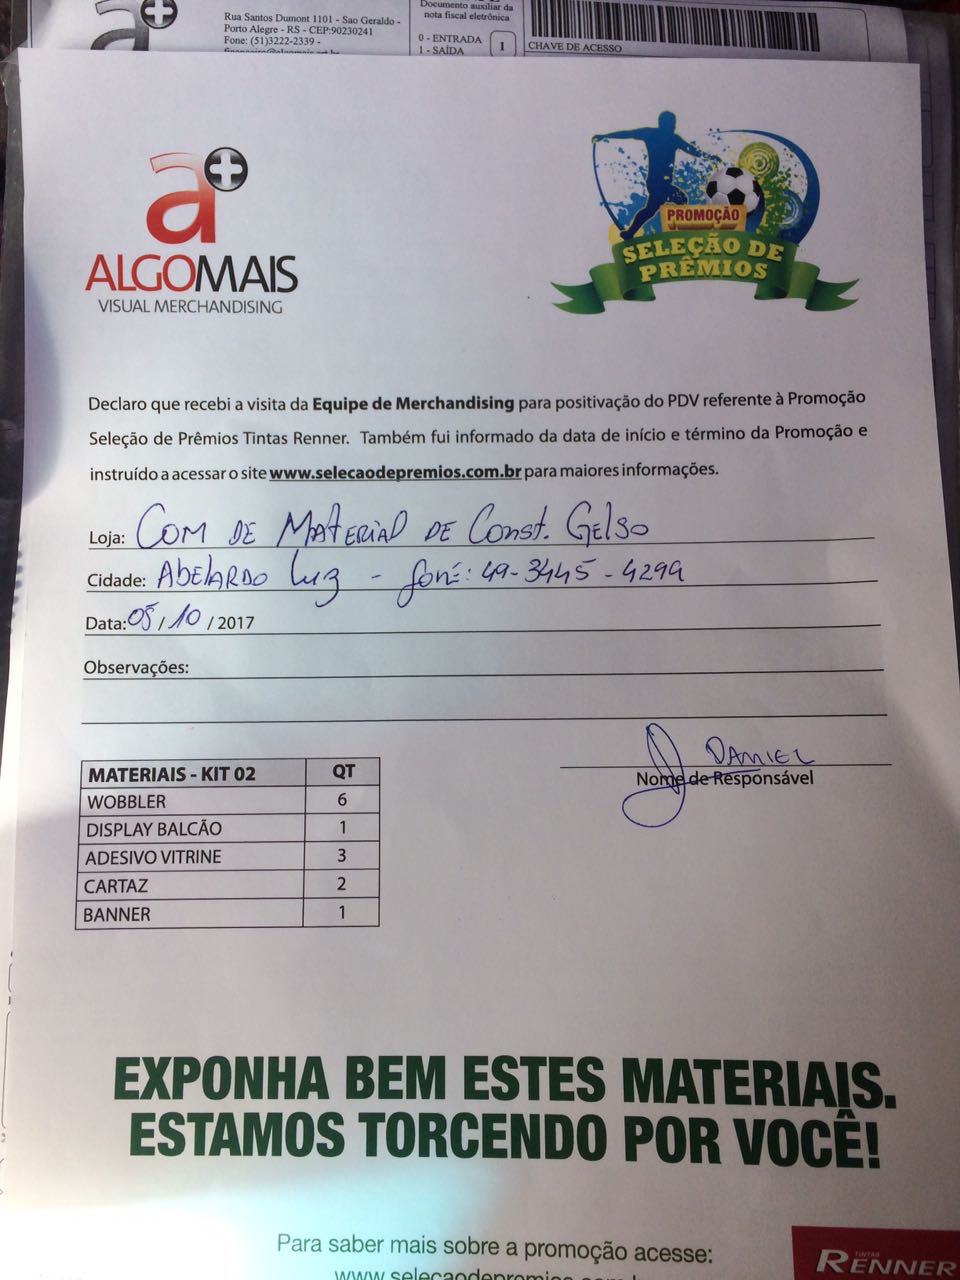 Rua Santos Dumont 1101 - Sao Geraldo -
Porto Alegre - RS - CEP:90230241
Fone: (51)3222-2339 -
Documento auxiliar da
nota fiscal eletrônica
0 - ENTRADA
1 - SAÍDA
1
CHAVE DE ACESSO
a+
ALGOMAIS
VISUAL MERCHANDISING
PROMOÇÃO
SELEÇÃO DE
PRÊMIOS
Declaro que recebi a visita da Equipe de Merchandising para positivação do PDV referente à Promoção
Seleção de Prêmios Tintas Renner. Também fui informado da data de início e término da Promoção e
instruído a acessar o site www.selecaodepremios.com.br para maiores informações.
Loja: COM DE MATERIAL DE CONST. GELSO
Cidade: ABELARDO LUZ - foné: 49-3445-4299
Data: 05 / 10 / 2017
Observações:
DANIEL
Nome de Responsável
MATERIAIS - KIT 02 QT
WOBBLER 6
DISPLAY BALCÃO 1
ADESIVO VITRINE 3
CARTAZ 2
BANNER 1
EXPONHA BEM ESTES MATERIAIS.
ESTAMOS TORCENDO POR VOCÊ!
Para saber mais sobre a promoção acesse:
TINTAS
RENNER